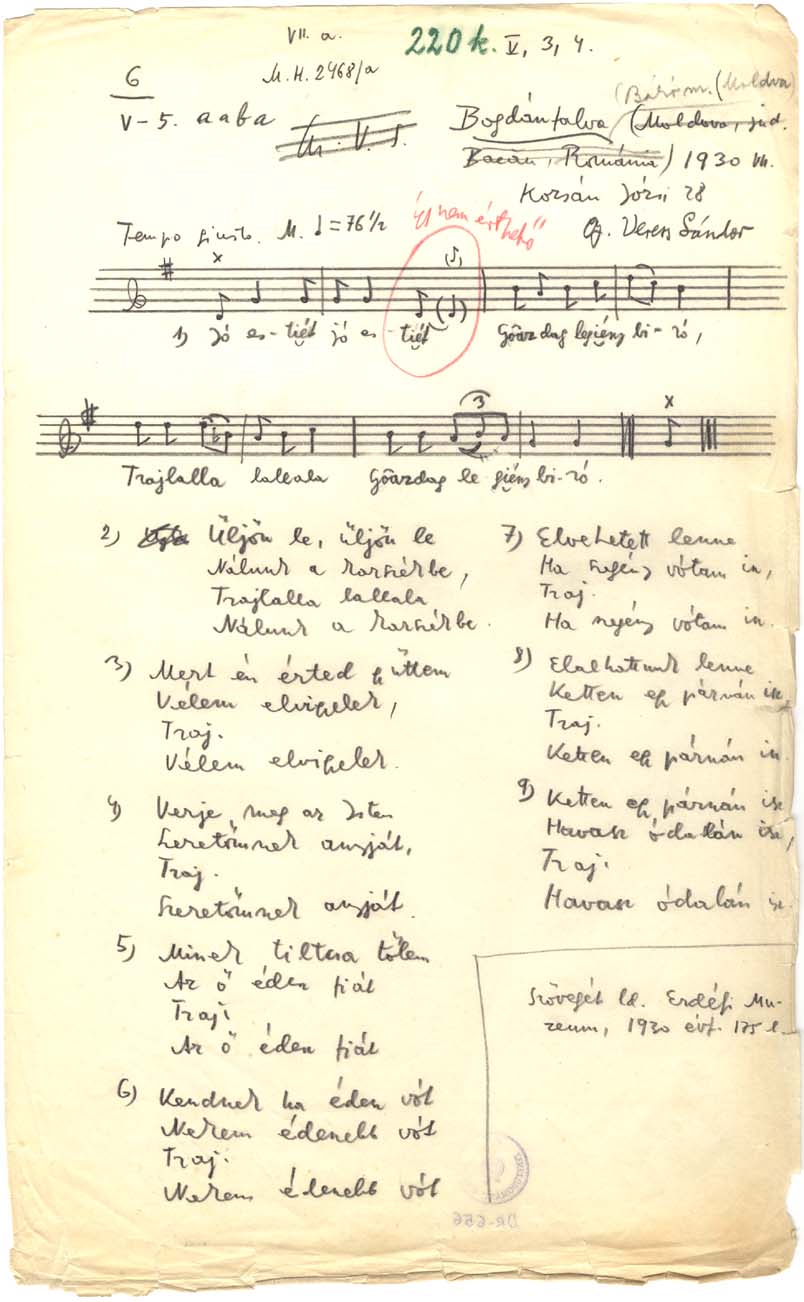 VII. a.
220 k. V, 3, 4.
6
M.H. 2468/a
V-5. aaba
Bogdánfalva (Moldova, jud.
(Bákó m. (Moldva)
Bacău, România) 1930 VII.
Kozsán Józsi 28
Tempo giusto. M. ♩ = 76 1/2
"így nem érthető"
Gy. Veress Sándor
1) Jó es-tiét jó es-tiét Gôazdag legiény bi-ró,
3
Trajlalla lallala Gôazdag le giény bi-ró.
2) Üljön le, üljön le
Nálunk a karszékbe,
Trajlalla lallala
Nálunk a karszékbe.
3) Mert én érted jüttem
Vélem elvigyelek,
Traj.
Vélem elvigyelek.
4) Verje meg az Isten
Szeretőmnek anyját,
Traj.
Szeretőmnek anyját.
5) Minek tiltsa tőlem
Az ő éden fiát
Traj.
Az ő éden fiát
6) Kendnek ha éden vót
Nekem édenebb vót
Traj.
Nekem édenebb vót
7) Elvehetett lenne
Ha szegény vótam is,
Traj.
Ha szegény vótam is.
8) Elalhattunk lenne
Ketten egy párnán is,
Traj.
Ketten egy párnán is.
9) Ketten egy párnán is
Havasz ódalán is,
Traj.
Havasz ódalán is.
Szövegét ld. Erdélyi Mu-
zeum, 1930 évf. 175 l.